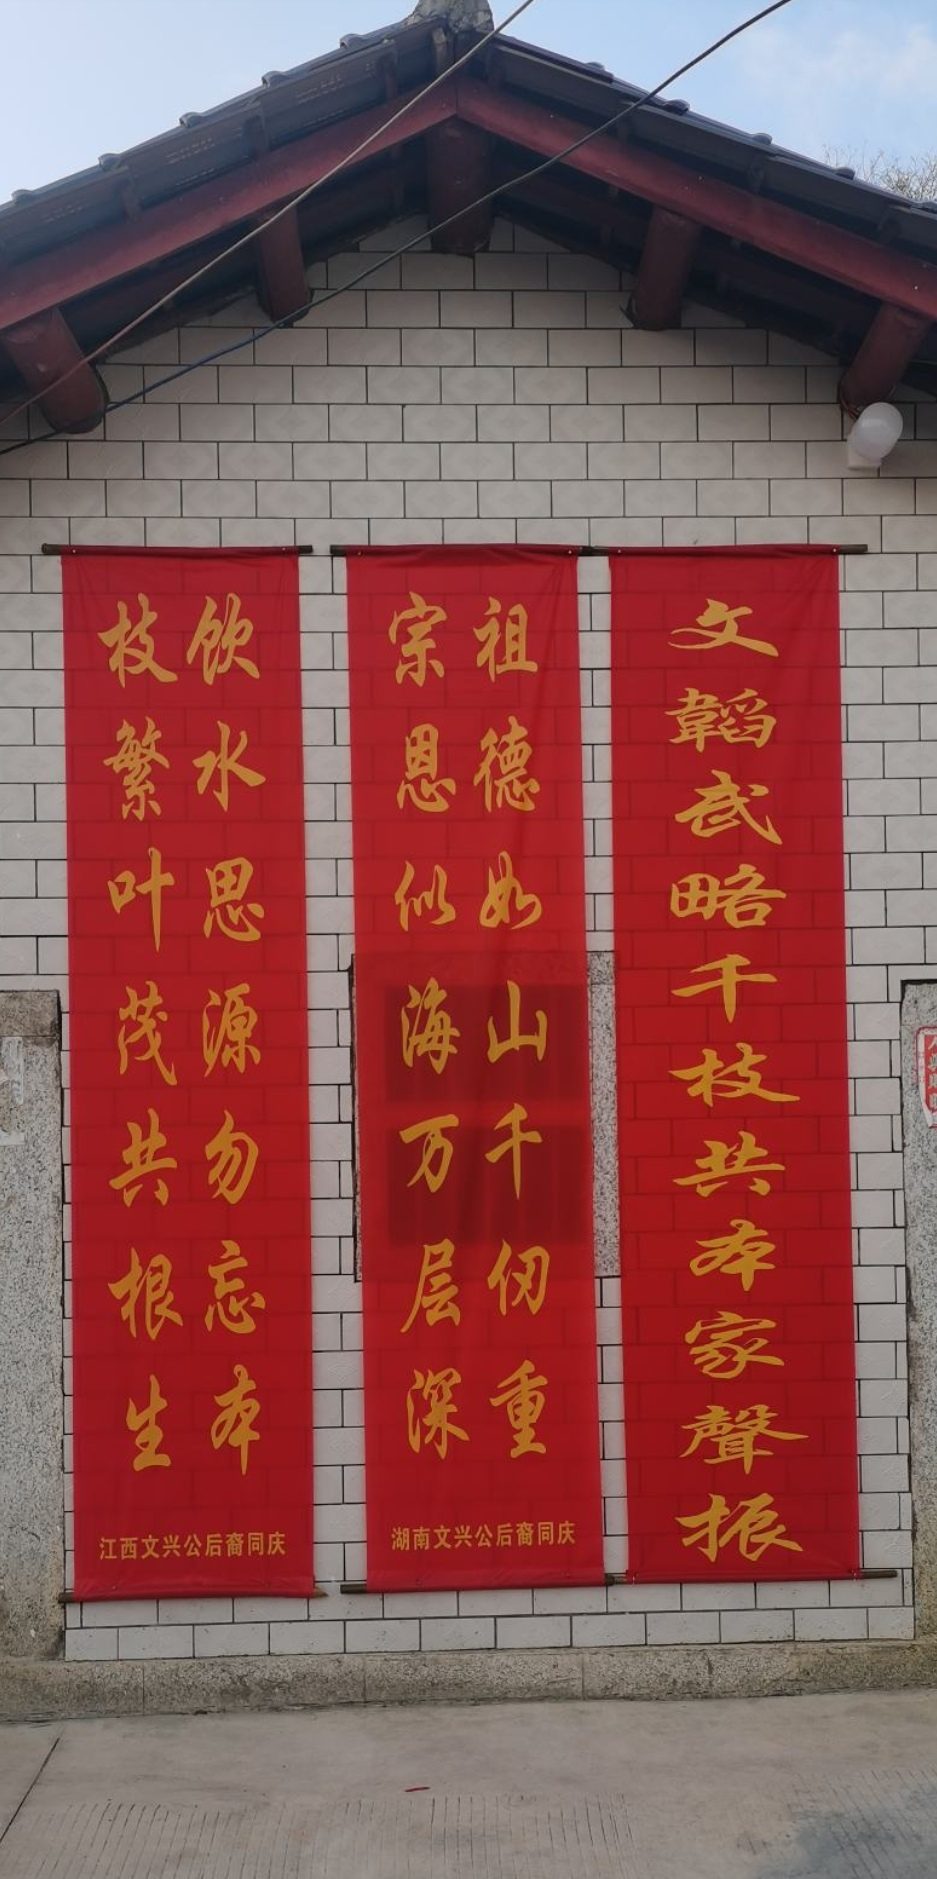 文韜武略千枝共本家聲振
祖德如山千仞重
宗恩似海万层深
湖南文兴公后裔同庆
饮水思源勿忘本
枝繁叶茂共根生
江西文兴公后裔同庆